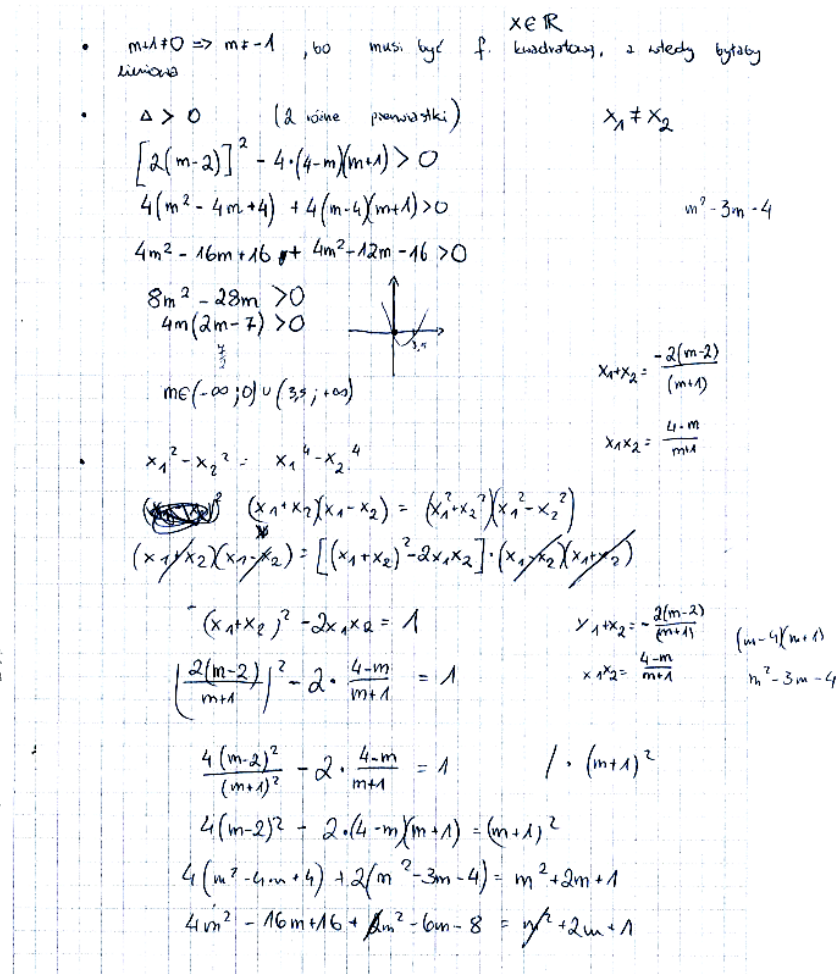 x∈ℝ
• m+1≠0 => m≠-1, bo musi być f. kwadratową, a wtedy byłaby
liniowa
• Δ > 0 (2 różne pierwiastki) x₁ ≠ x₂
[2(m-2)]² - 4·(4-m)(m+1) > 0
4(m² - 4m+4) + 4(m-4)(m+1) >0 m²-3m-4
4m² - 16m+16 + 4m²-12m-16 >0
8m² - 28m >0
4m(2m-7) >0
3,5
m∈(-∞;0)∪(3,5;+∞)
x₁+x₂ = -2(m-2)/(m+1)
x₁x₂ = 4-m/m+1
• x₁²-x₂² = x₁⁴-x₂⁴
(x₁+x₂)(x₁-x₂) = (x₁²+x₂²)(x₁²-x₂²)
(x₁+x₂)(x₁-x₂) = [(x₁+x₂)²-2x₁x₂]·(x₁-x₂)(x₁+x₂)
(x₁+x₂)² -2x₁x₂ = 1 x₁+x₂ = -2(m-2)/(m+1) (m-4)(m+1)
(2(m-2)/m+1)² - 2· 4-m/m+1 = 1 x₁x₂ = 4-m/m+1 m²-3m-4
4(m-2)²/(m+1)² - 2· 4-m/m+1 = 1 /·(m+1)²
4(m-2)² - 2·(4-m)(m+1) = (m+1)²
4(m²-4m+4) +2(m²-3m-4) = m²+2m+1
4m² - 16m+16 + 2m²-6m-8 = m²+2m+1